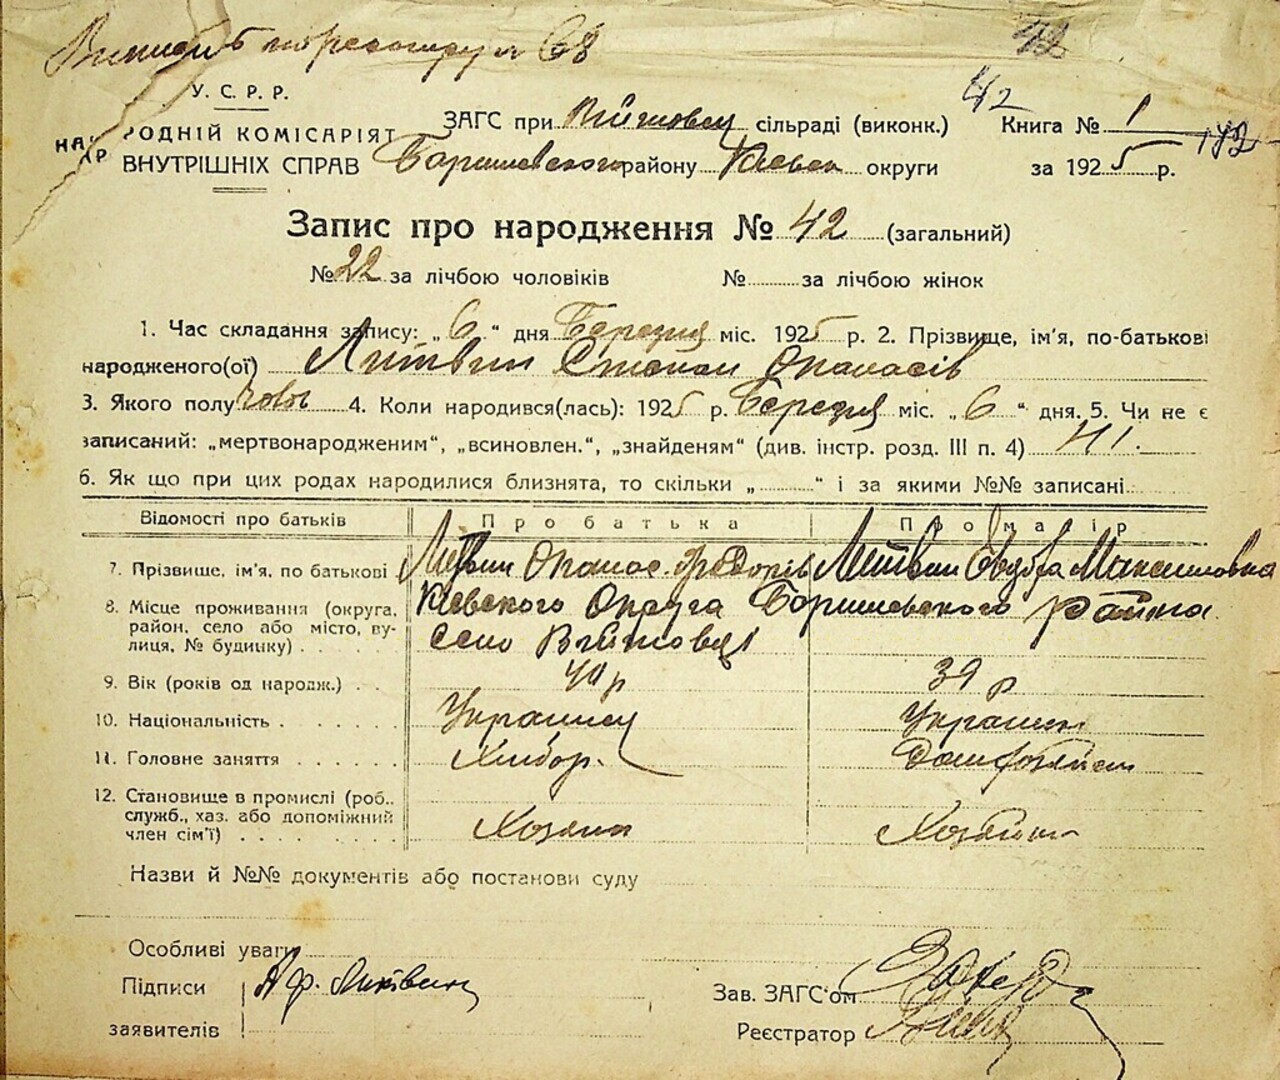 68 42
У. С. Р. Р.
НАРОДНІЙ КОМІСАРІЯТ
ВНУТРІШНІХ СПРАВ
ЗАГС при Війтовец сільраді (виконк.) 42 Книга № 1
Баришевского району Киевск округи за 1925 р.
Запис про народження № 42 (загальний)
№ 22 за лічбою чоловіків № за лічбою жінок
1. Час складання запису: „6“ дня Березня міс. 1925 р. 2. Прізвище, ім'я, по-батькові
народженого(ої) Литвин Степан Опанасів
3. Якого полу чолов 4. Коли народився(лась): 1925 р. Березня міс. „6“ дня. 5. Чи не є
записаний: „мертвонародженим“, „всиновлен.“, „знайденям“ (див. інстр. розд. III п. 4) Ні.
6. Як що при цих родах народилися близнята, то скільки „ “ і за якими №№ записані
Відомості про батьків Про батька Про матір
7. Прізвище, ім'я, по батькові Литвин Опанас Федорів Литвин Евдоха Максимовна
8. Місце проживання (округа, район, село або місто, вулиця, № будинку) Киевского Округа Баришевского району
село Війтовці
9. Вік (років од народж.) 40 р 39 р
10. Національність Украинец Украинка
11. Головне заняття Хлібор. Домохозяйст
12. Становище в промислі (роб., служб., хаз. або допоміжний член сім'ї) Хозяин Хозяйка
Назви й №№ документів або постанови суду
Особливі уваги
Підписи
заявителів
Зав. ЗАГС'ом
Реєстратор